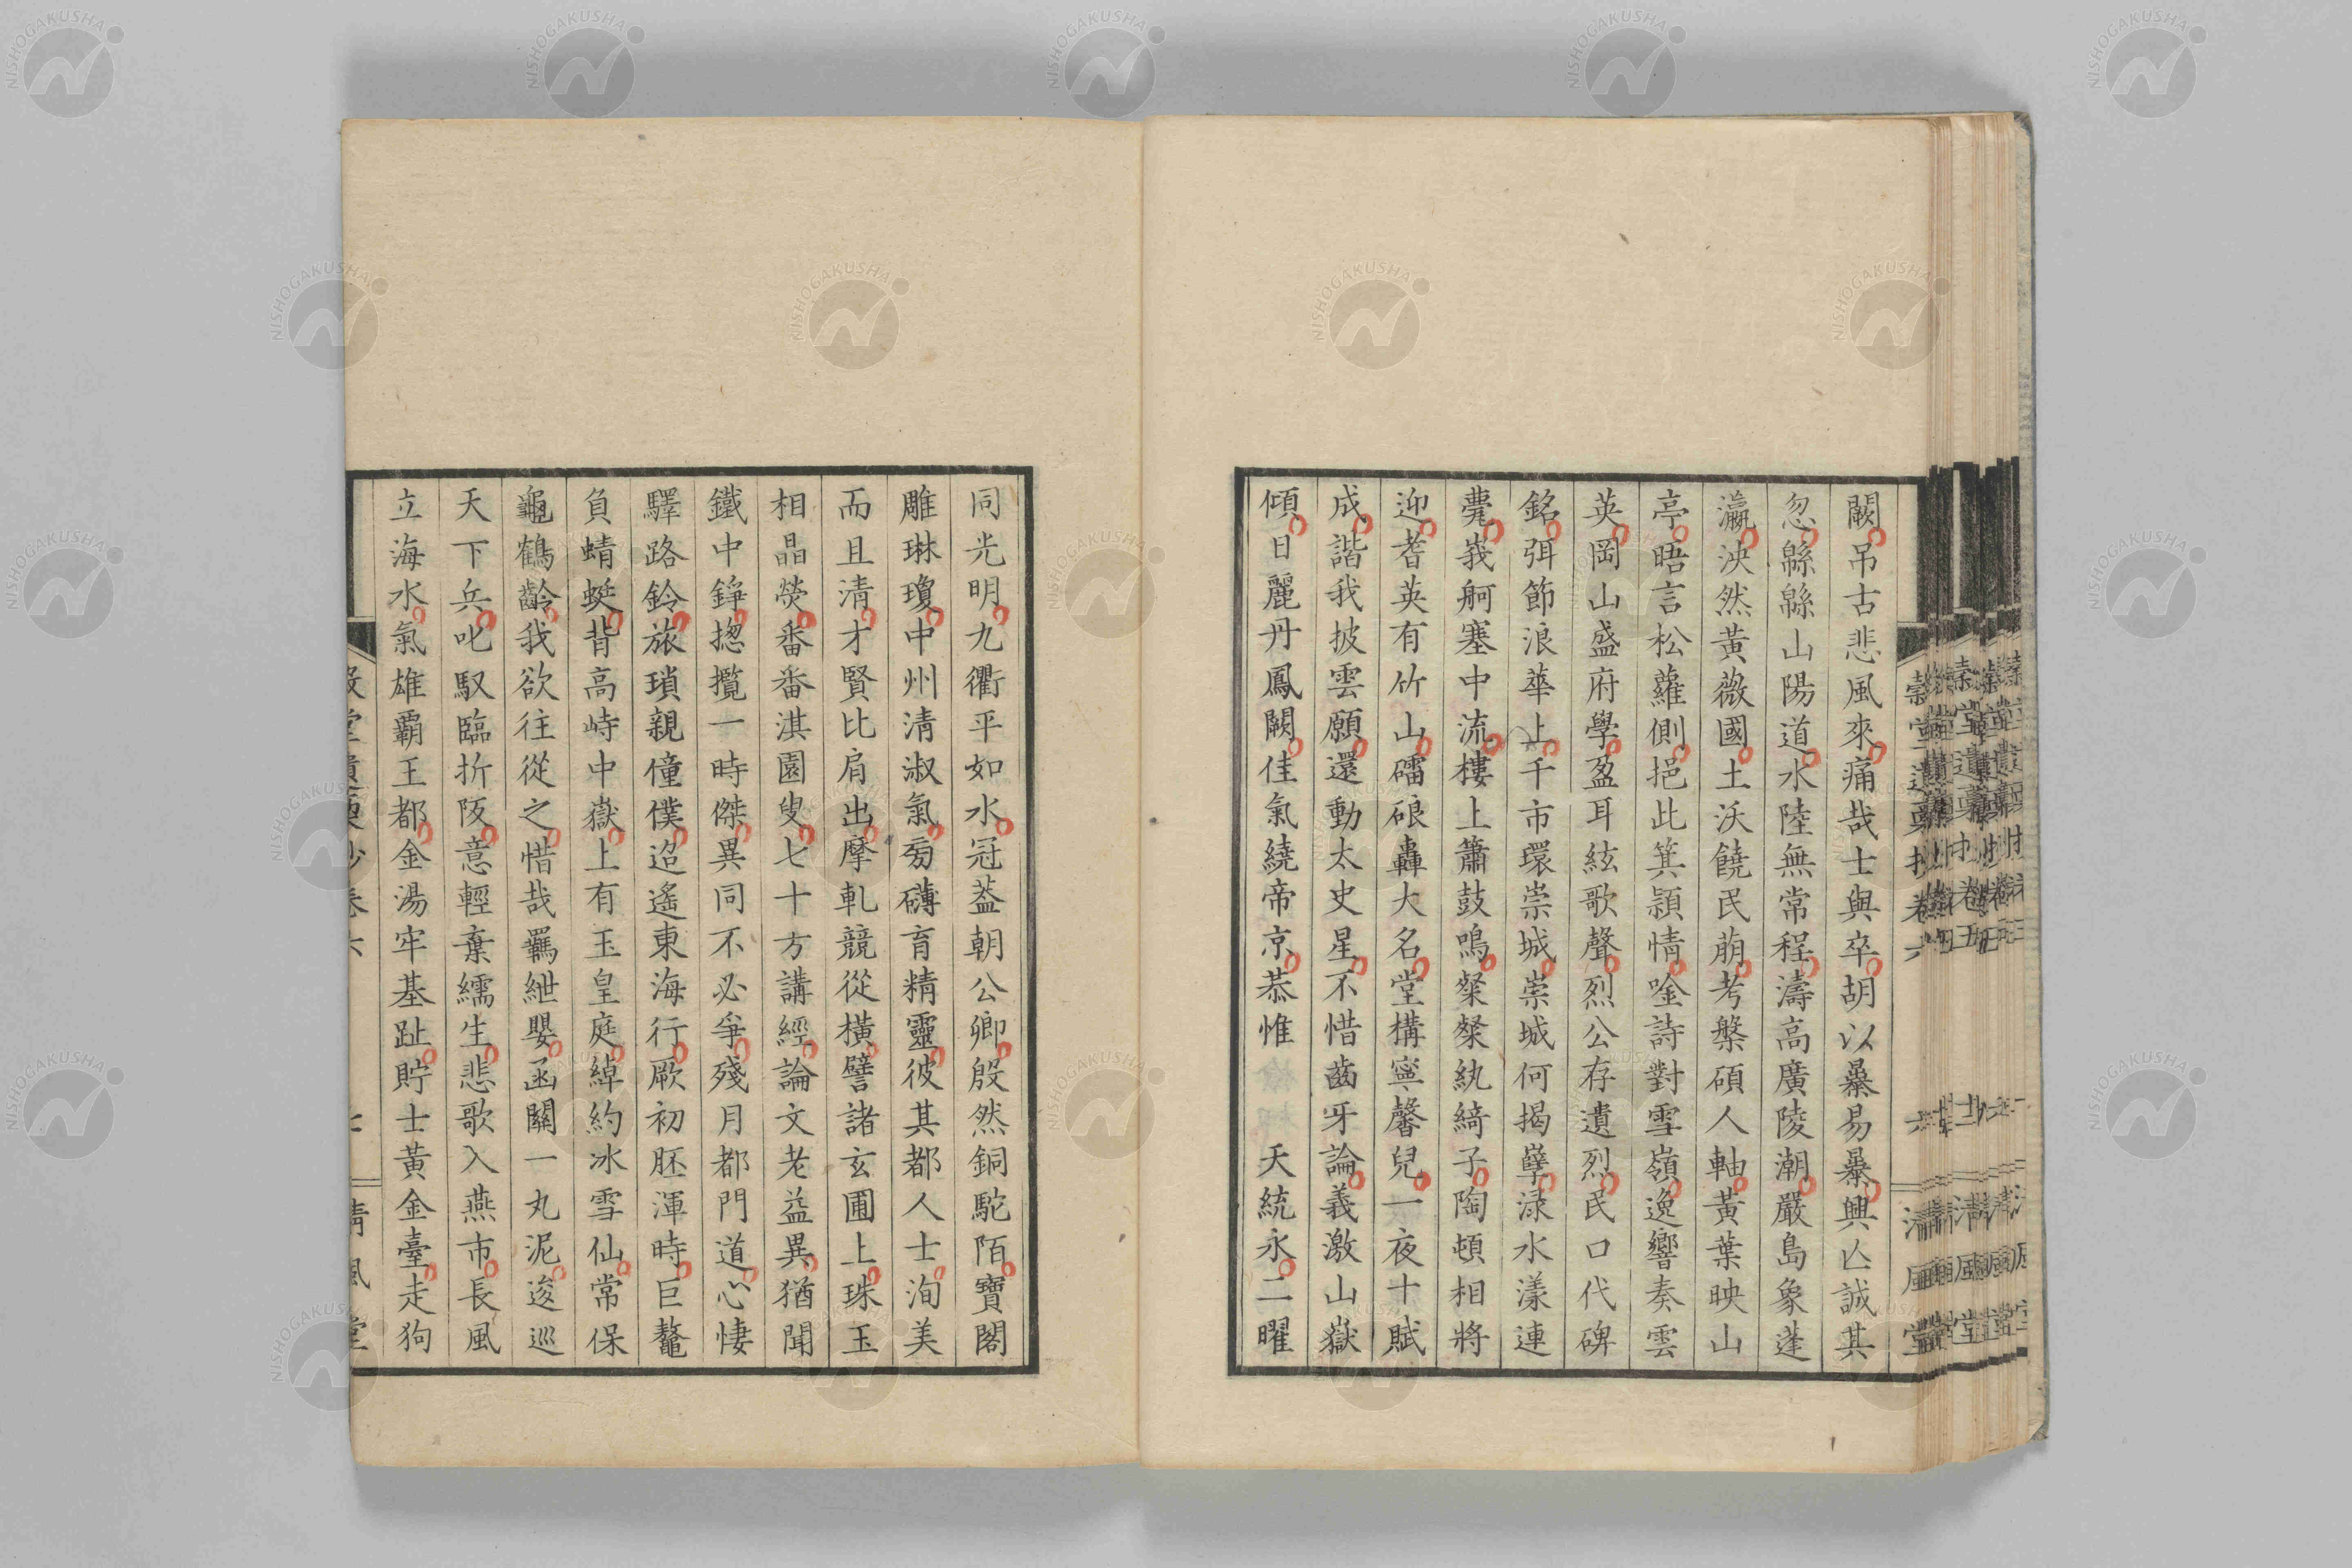 闕吊古悲風來痛哉士與卒胡以暴易暴興亾誠其
忽緜緜山陽道水陸無常程濤高廣陵潮嚴島象蓬
瀛泱然黃薇國土沃饒民萠考槃碩人軸黃葉映山
亭晤言松蘿側挹此箕潁情唫詩對雪嶺逸響奏雲
英岡山盛府學盈耳絃歌聲烈公存遺烈民口代碑
銘弭節浪華上千市環崇城崇城何揭孽淥水漾連
甍峩舸塞中流樓上簫鼓鳴粲粲紈綺子陶頓相將
迎耆英有竹山礌硠轟大名堂構寧馨兒一夜十賦
成諧我披雲願還動太史星不惜齒牙論義激山嶽
傾日麗丹鳳闕佳氣繞帝京恭惟 天統永二曜
同光明九衢平如水冠葢朝公卿殷然銅駝陌寶閣
雕琳瓊中州清淑氣匑礴育精靈彼其都人士洵美
而且清才賢比肩出摩軋競從橫譬諸玄圃上珠玉
相晶熒番番淇園叟七十方講經論文老益異猶聞
鐵中錚摠攬一時傑異同不必爭殘月都門道心悽
驛路鈴旅瑣親僮僕迢遙東海行厥初胚渾時巨鼇
負蜻蜓背高峙中嶽上有玉皇庭綽約冰雪仙常保
龜鶴齡我欲往從之惜哉羈紲嬰函關一丸泥逡巡
天下兵叱馭臨折阪意輕棄繻生悲歌入燕市長風
立海水氣雄覇王都金湯牢基趾貯士黃金臺走狗
清風堂
NISHOGAKUSHA